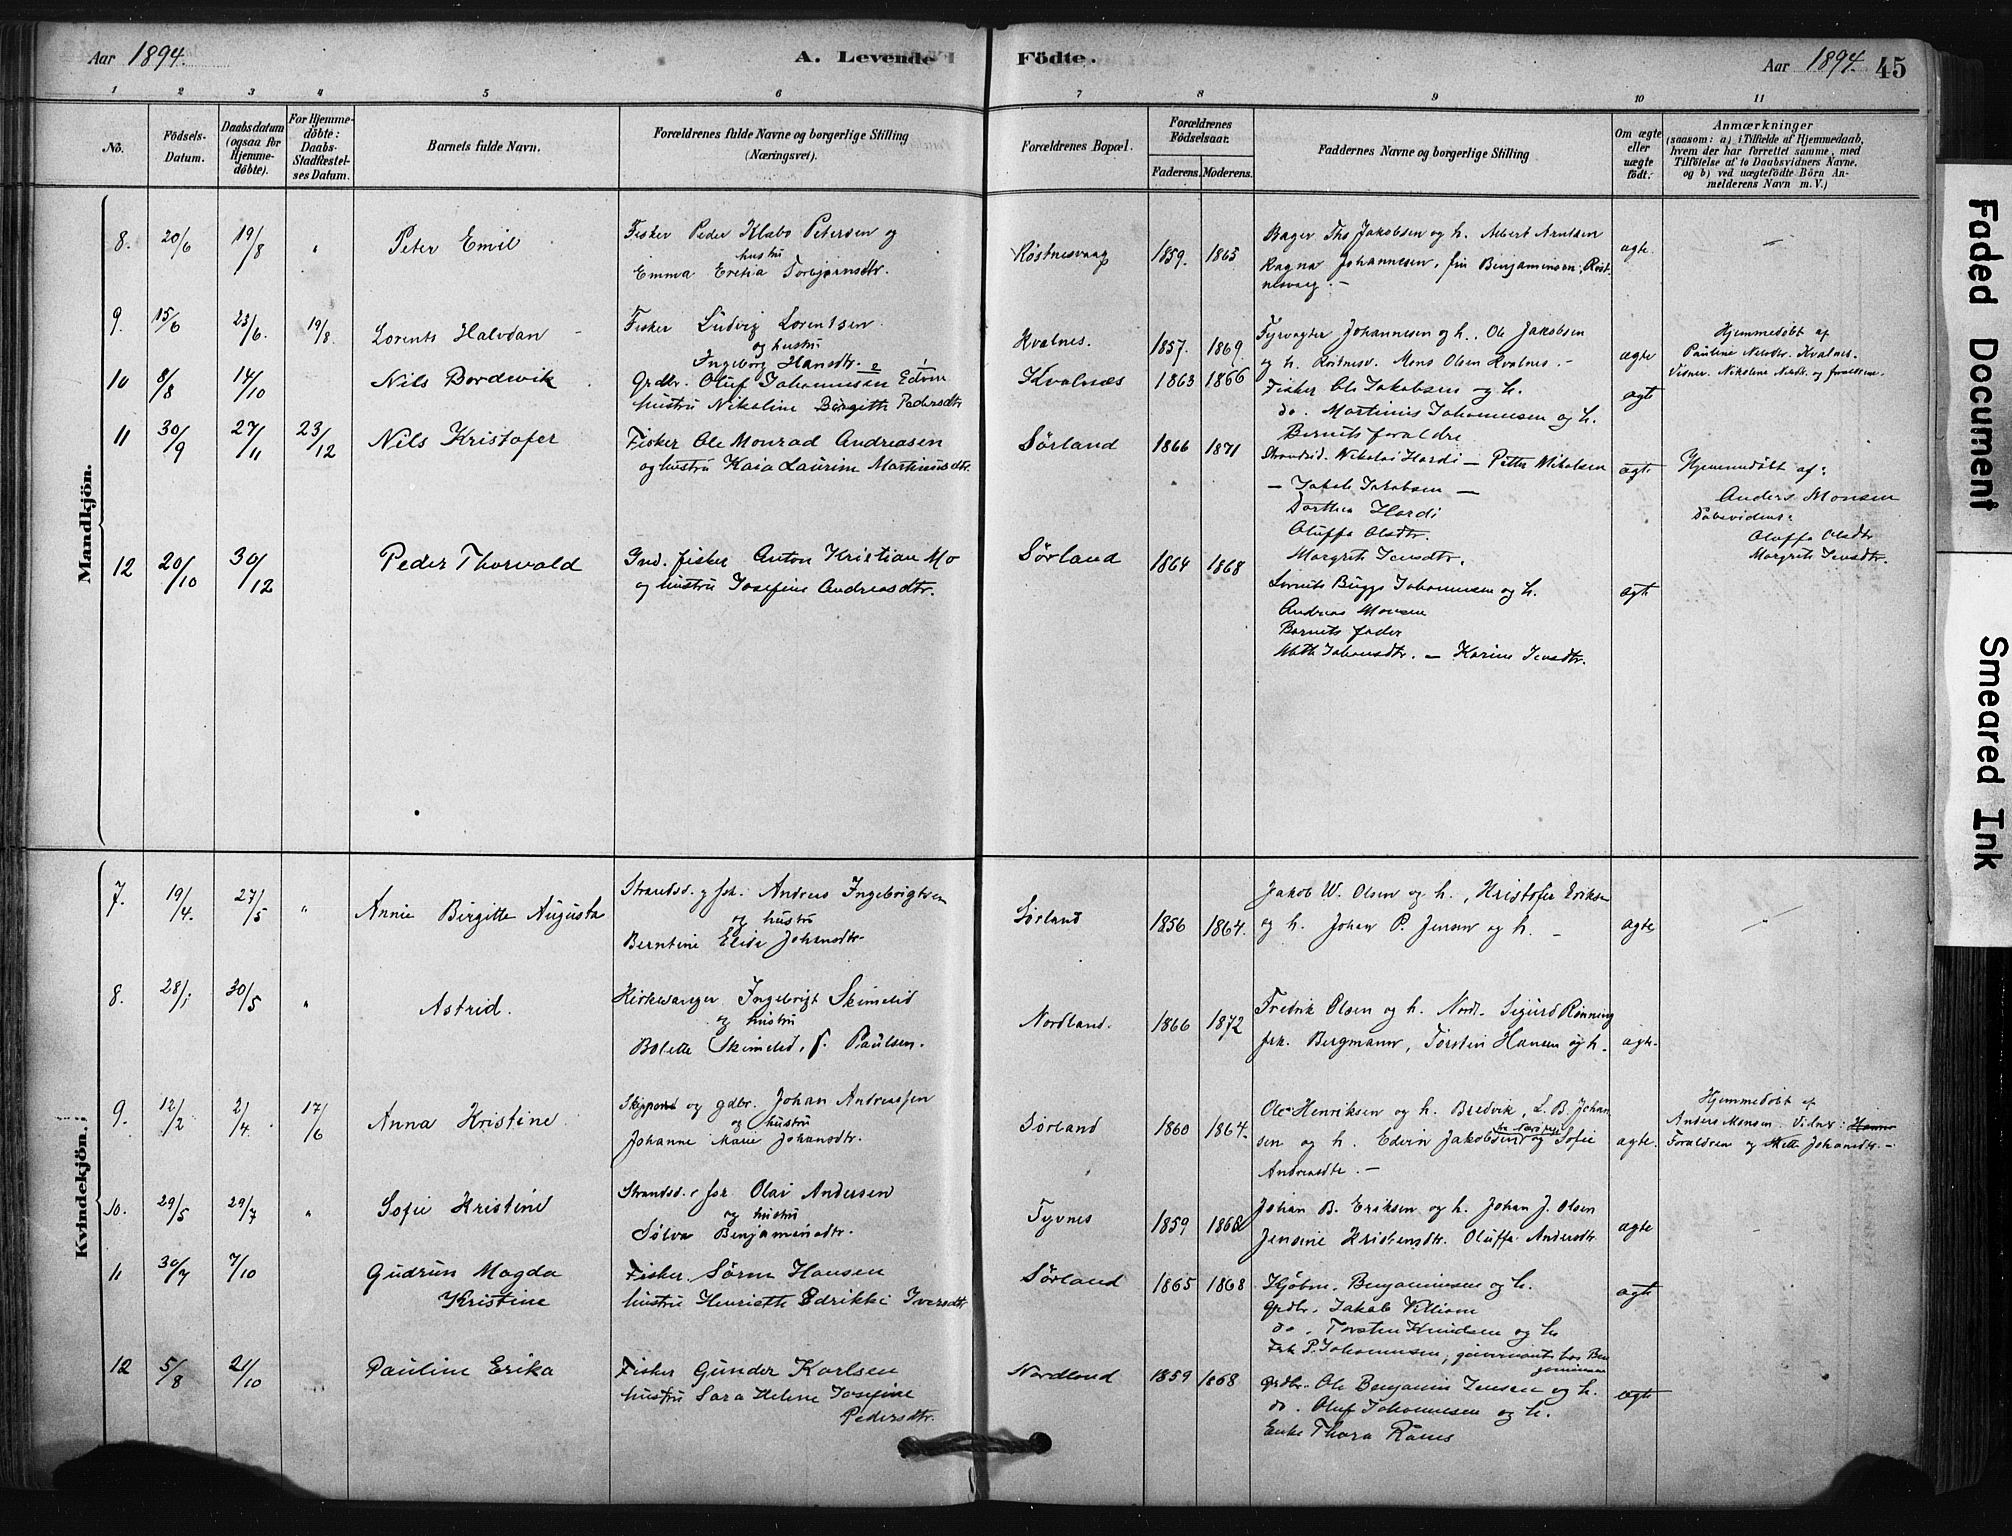 Aar 1894. A. Levende Födte. Aar 1894. 45
1 2 3 4 5 6 7 8 9 10 11
No.
Födsels-
Datum.
Daabsdatum
(ogsaa for
Hjemme-
döbte).
For Hjemme-
döbte:
Daabs-
Stadfæstel-
ses Datum.
Barnets fulde Navn.
Forældrenes fulde Navne og borgerlige Stilling
(Næringsvei).
Forældrenes Bopæl.
Forældrenes
Födselsaar.
Faderens. Moderens.
Faddernes Navne og borgerlige Stilling
Om ægte
eller
uægte
født.
Anmærkninger
(saasom: a) i Tilfælde af Hjemmedaab,
hvem der har forrettet samme, med
Tilföielse af to Daabsvidners Navne,
og b) ved uægtefödte Börn An-
melderens Navn m. V.)
Mandkjön.
8. 20/6 19/8 " Peter Emil
Fisker Peder Klabo Petersen og
hustru
Emma Eretia Torbjørnsdtr.
Røstnesvaag 1859. 1865
Bager Ths Jakobsen og h. Albert Arntsen
Ragna Johannesen, frk Benjaminsen, Røst-
nesvaag. —
ægte. —
9. 15/6 23/6. 19/8. Lorents Halvdan —
Fisker Ludvig Lorentsen
og hustru
Ingeborg Hansdtr.
Kvalnes. 1857. 1869.
Fyrvogter Johannesen og h. Ole Jakobsen
og h. Mons Olsen Kvalnes. —
ægte
Hjemmedøbt af
Pauline Kvalnes.
10 8/8 14/10 Nils Bordewik
Grdbr. Oluf Johannesen
hustru Nikoline Birgitte Pedersdtr
Kvalnæs 1863 1866
Fisker Ole Jakobsen og h.
do. Martinus Johannesen og h.
Barnets forældre
ægt
11 30/9 27/11 23/12 Nils Kristofer
Fisker Ole Monrad Andreasen
og hustru Kaia Laurine Martinusdtr.
Sørland 1866 1871
Strandsid. Nikolai Hardi — Petter Nikolsen
— Jakob Jakobsen —
Dorthea Hardi
Oluffa Olsdtr.
Margrete Jensdtr.
ægte
Hjemmedøbt af:
Anders Monsen
Daabsvidner:
Oluffa Olsdtr
Margrete Jensdtr.
12 20/10 30/12 Peder Thorvald
Gmd. fisker Anton Kristian Mo
og hustru Josefine Andreasdtr.
Sørland 1864 1868
Lornts Bugge Johannesen og h.
Andreas Monsen
Barnets fader
Mette Johansdtr. — Karine Jensdtr.
ægt
Kvindekjön.
7. 19/4. 27/5 " Annie Birgitte Augusta
Strandsd. og fsk. Andreas Ingebrigtsen
og hustru
Berntine Elise Johansdtr.
Sørland 1856 1864.
Jakob W. Olsen og h., Kristofer Eriksen
og h. Johan P. Jensen og h. —
ægte "
8. 28/1 30/5 " Astrid.
Kirkesanger Ingebrigt Skimelid
og hustru
Bolette Skimelid, f. Paulsen.
Nordland. 1866 1872
Fredrik Olsen og h. Nordl. Sigurd Rønning
frk. Bergmann, Torsten Hansen og h.
ægte.
9. 12/2 2/4. 17/6 Anna Kristine
Skipper og gdbr. Johan Andreassen
og hustru
Johanne Marie Johansdtr.
Sørland 1860 1864.
Ole Henriksen og h. Bredvik, L. B. Johan
sen og h. Edvin Jakobsen og Sofie
Andreasdtr. —
ægte.
Hjemmedøbt af
Anders Monsen. Vidner:
Forældren og Mette Johansdtr. —
10. 29/5 29/7 " Sofie Kristine
Strandsd. & fsk. Olai Andersen
og hustru
Sølva Benjaminsdtr.
Tyvnes 1859 1868
Johan B. Eriksen og h. Johan J. Olsen
Jensine Kristensdtr. Oluffa Andersdtr.
ægte
11 30/7 7/10 Gudrun Magda
Kristine
Fisker Sørn Hansen
hustru Henriette Edrikke Iversdtr
Sørland 1865 1868
Kjøbm. Benjaminsen og h.
Grdbr. Jakob Villiam
do. Torsten Knudsen og h.
Frk P. Johannesen, guvernante hos Ben
jaminsen
ægt
12 5/8 21/10 Pauline Erika
Fisker Gunder Karlsen
hustru Sara Helene Josefine
Pedersdtr.
Nordland 1859 1868
Grdbr. Ole Benjamin Jensen og h.
do. Oluf Johannesen og h.
Enke Thora
ægte
Faded Document
Smeared Ink